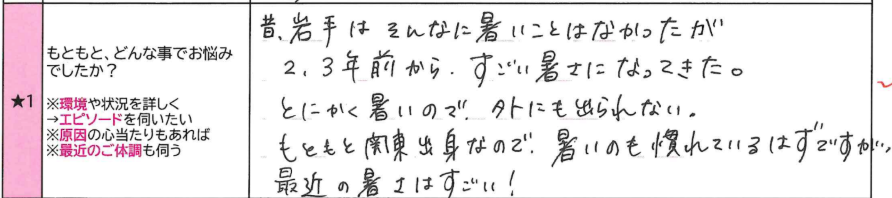 ★1
もともと、どんな事でお悩み
でしたか？
※環境や状況を詳しく
→エピソードを伺いたい
※原因の心当たりもあれば
※最近のご体調も伺う
昔、岩手はそんなに暑いことはなかったが
2、3年前から、すごい暑さになってきた。
とにかく暑いので、外にも出られない。
もともと関東出身なので、暑いのも慣れているはずですが、
最近の暑さはすごい！